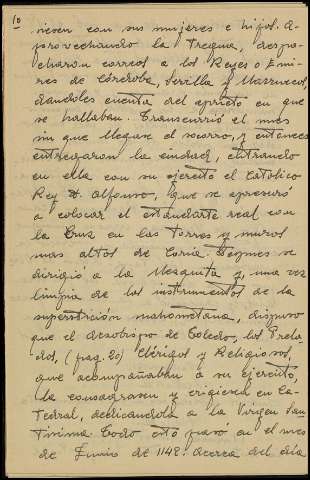 10
niesen con sus mujeres e hijos. A-
provechando la tregua, despa-
charon correos a los Reyes o Emi-
res de Córdoba, Sevilla y Marruecos,
dándoles cuenta del aprieto en que
se hallaban. Transcurrió el mes
sin que llegase el socorro, y entonces
entregaron la ciudad, entrando
en ella con su ejército el Católico
Rey D. Alfonso, que se apresuró
a colocar el estandarte real con
la Cruz en las torres y muros
mas altos de Coria. Despues se
dirigió a la Mezquita y, una vez
limpia de los instrumentos de la
superstición mahometana, dispuso
que el Arzobispo de Toledo, los Prela-
dos, (pag. 20) Clérigos y Religiosos,
que acompañaban a su ejército,
la consagrasen y erigiesen en Ca-
tedral, dedicándola a la Virgen San-
tísima. Todo esto pasó en el mes
de Junio de 1142. Acerca del día